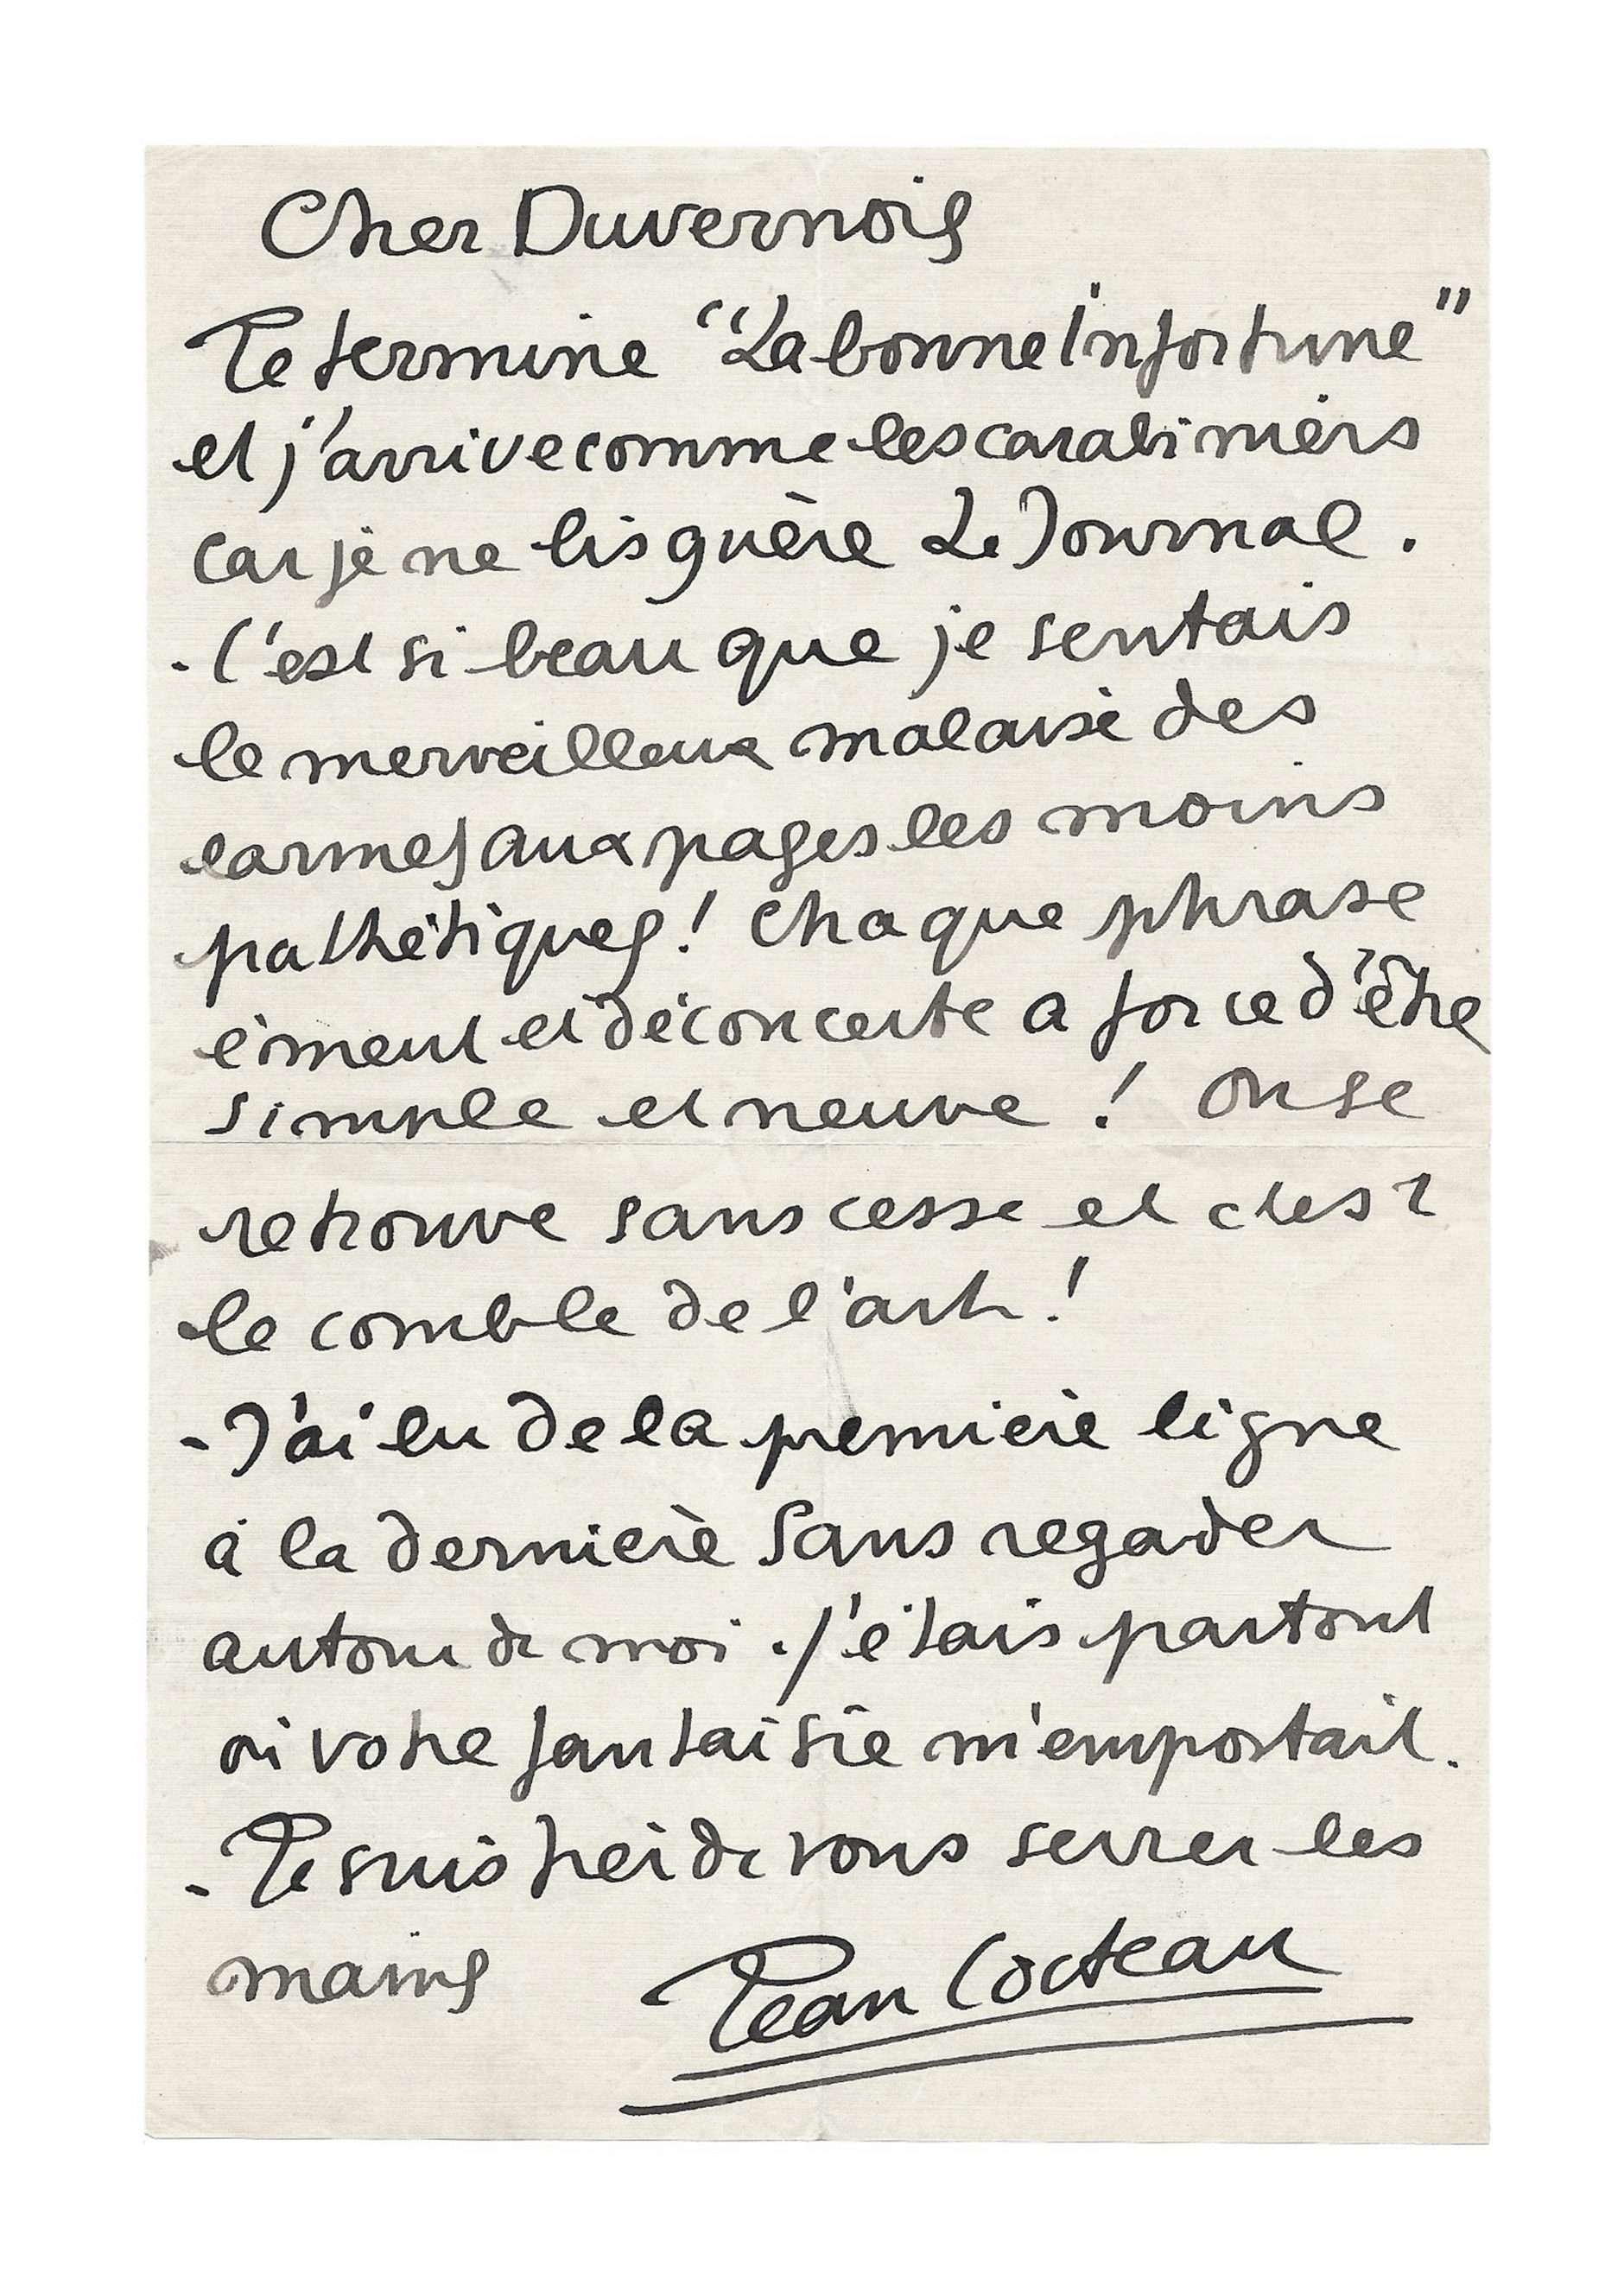 Cher Duvernois
Je termine "La bonne Infortune"
et j'arrive comme les carabiniers
car je ne lis guère Le Journal.
- C'est si beau que je sentais
le merveilleux malaise des
larmes aux pages les moins
pathétiques! Chaque phrase
émeut et déconcerte a force d'être
simple et neuve ! On se
retrouve sans cesse et c'est
le comble de l'art !
- J'ai lu de la première ligne
à la dernière sans regarder
autour de moi. J'étais partout
où votre fantaisie m'emportait.
- Je suis fier de vous serrer les
mains Jean Cocteau